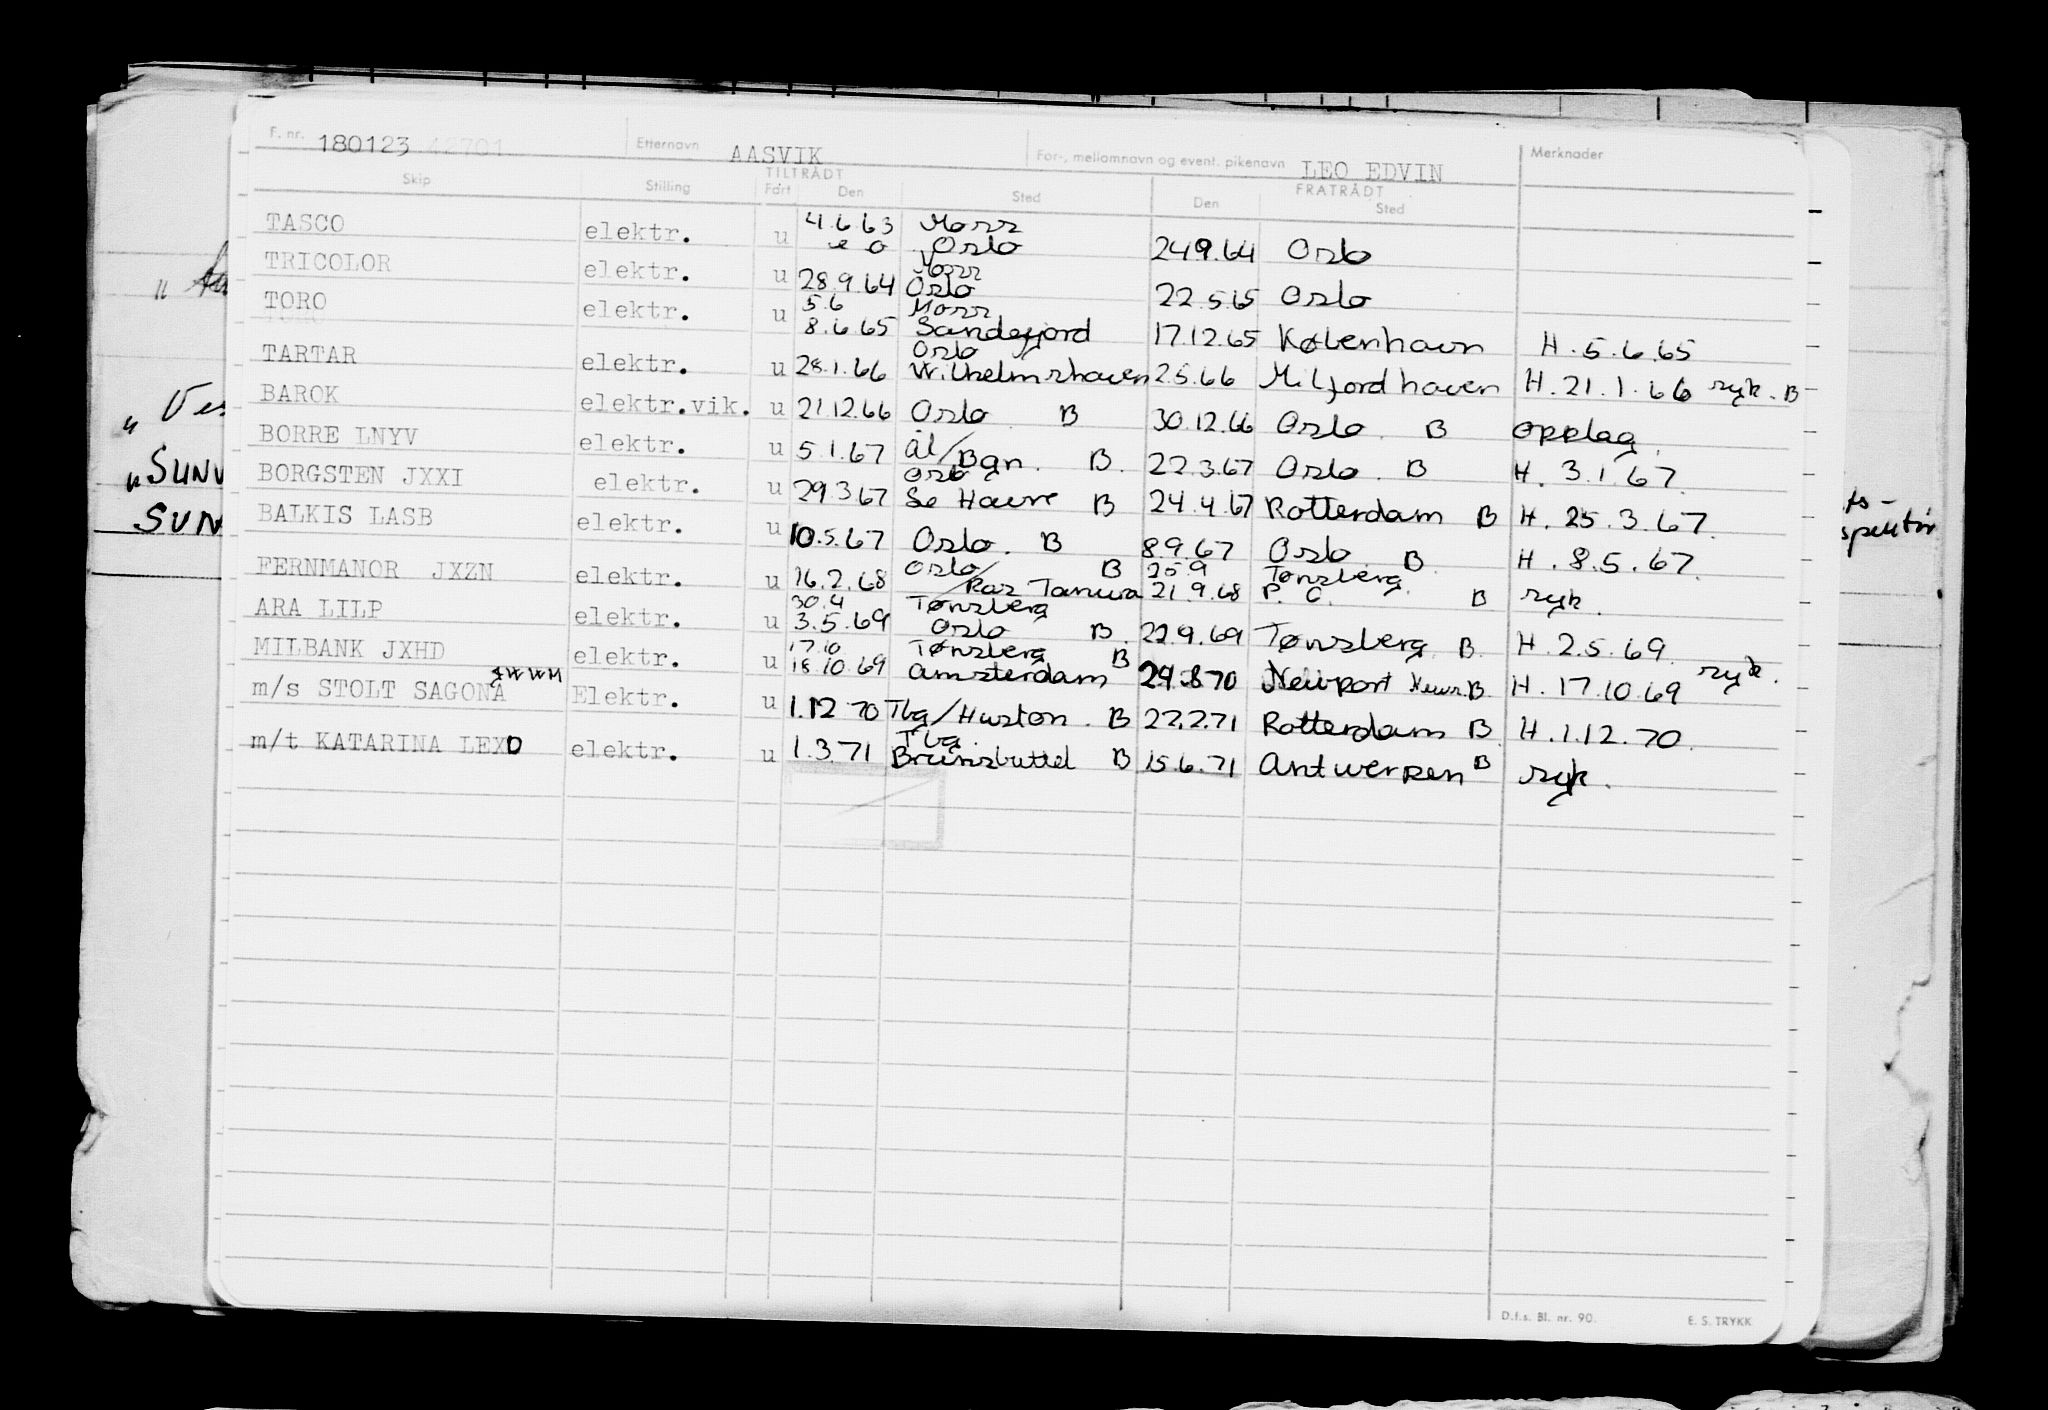 F. nr. 180123 42701 Etternavn AASVIK For-, mellomnavn og event. pikenavn LEO EDVIN Merknader
TILTRÅDT FRATRÅDT
Skip Stilling Fart Den Sted Den Sted
TASCO elektr. u 4.6.63 Moss Oslo 24.9.64 Oslo
TRICOLOR elektr. u 28.9.64 Moss Oslo 22.5.65 Oslo
TORO elektr. u 5.6 8.6.65 Moss Sandefjord 17.12.65 København H. 5.6.65
TARTAR elektr. u 28.1.66 Oslo Wilhelmshaven 2.5.66 Milfordhaven H. 21.1.66 syk. B
BAROK elektr.vik. u 21.12.66 Oslo. B 30.12.66 Oslo. B opplag.
BORRE LNYV elektr. u 5.1.67 Ål/Bgn. B. 22.3.67 Oslo. B H. 3.1.67.
BORGSTEN JXXI elektr. u 29.3.67 Oslo Le Havre B 24.4.67 Rotterdam B H. 25.3.67.
BALKIS LASB elektr. u 10.5.67 Oslo. B 8.9.67 Oslo B. H. 8.5.67.
FERNMANOR JXZN elektr. u 16.2.68 Oslo/Ras Tanura B 25.9 21.9.68 Tønsberg. P. C. B syk.
ARA LILP elektr. u 30.4 3.5.69 Tønsberg Oslo B. 22.9.69 Tønsberg. B. H. 2.5.69.
MILBANK JXHD elektr. u 17.10 18.10.69 Tønsberg Amsterdam B 24.8.70 Newport News. B H. 17.10.69 syk.
m/s STOLT SAGONA Elektr. u 1.12.70 Tbg/Huston. B 22.2.71 Rotterdam B H. 1.12.70.
m/t KATARINA LEXO elektr. u 1.3.71 Tbg. Brunsbuttel B 15.6.71 Antwerpen B syk.
D.f.s. Bl. nr. 90. E. S. TRYKK